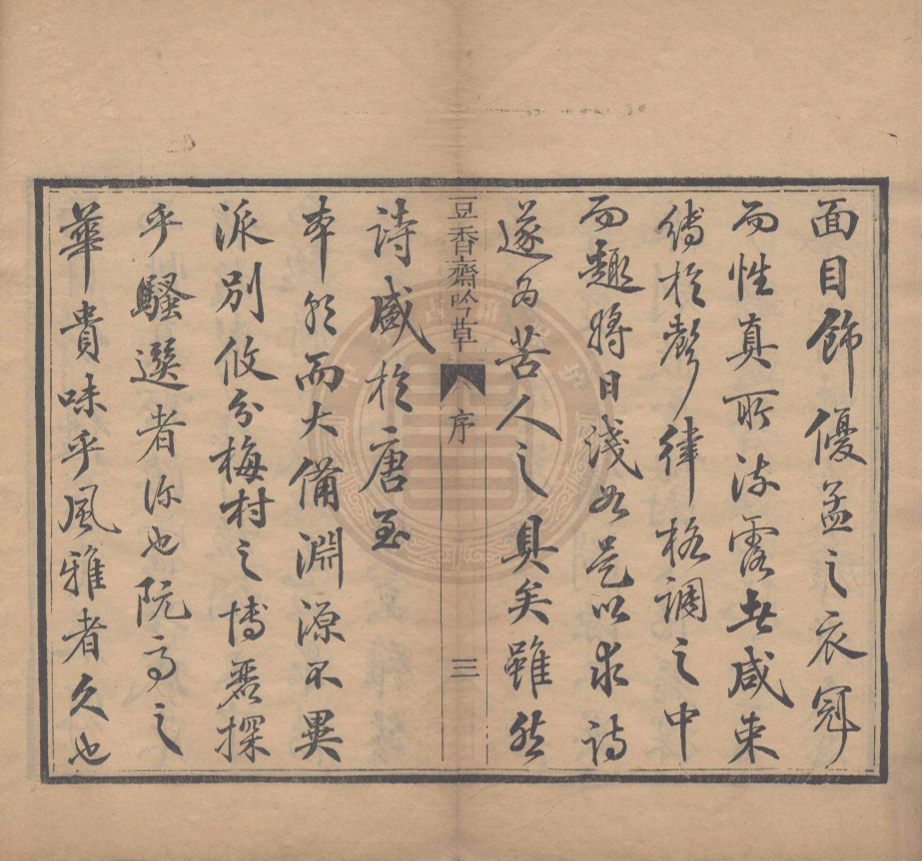 面目飾優孟之衣冠
而性真所流露者咸束
縛於聲律格調之中
而趣將日淺如是以求詩
遂為苦人之具矣雖然
豆香齋吟草 序 三
詩盛於唐至
本朝而大備淵源不異
派別攸分梅村之博麗探
乎騷選者深也阮亭之
華貴味乎風雅者久也